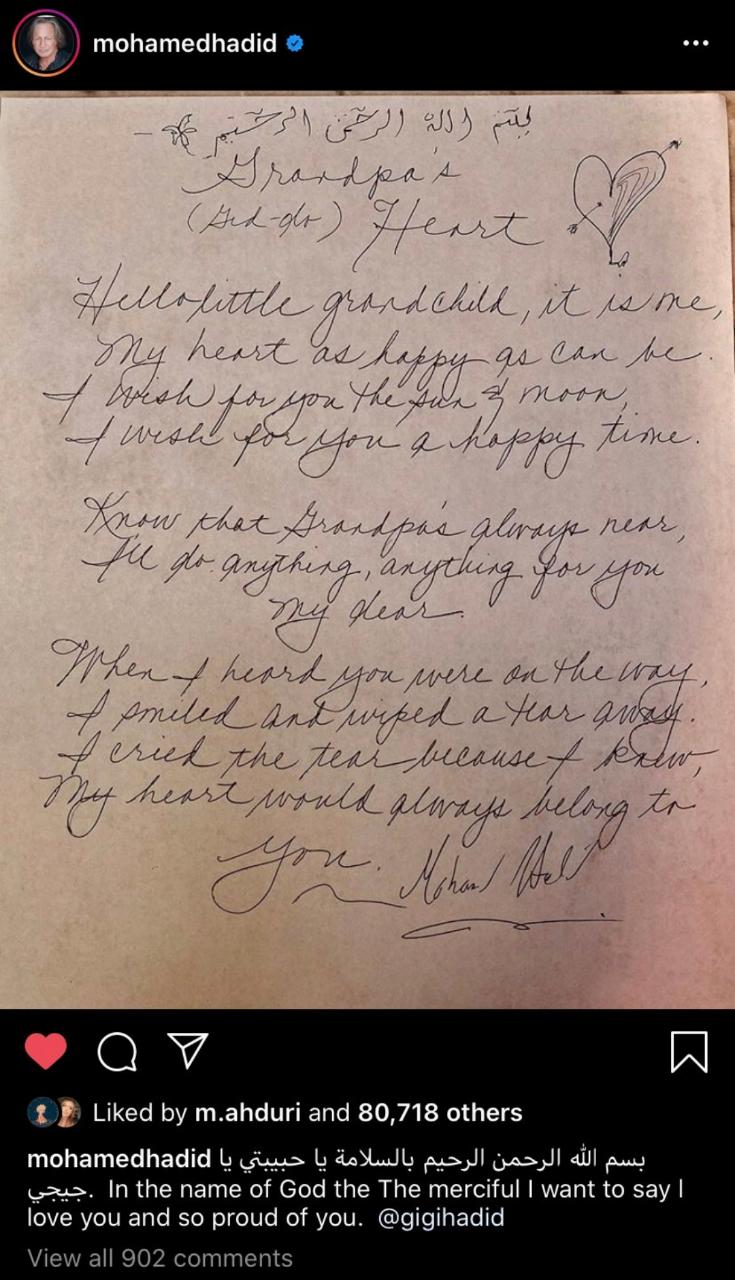 mohamedhadid
بسم الله الرحمن الرحيم
Grandpa's
(Gid-do) Heart
Hello little grandchild, it is me,
My heart as happy as can be.
I wish for you the sun & moon,
I wish for you a happy time.
Know that Grandpa's always near,
I'll do anything, anything for you
my dear.
When I heard you were on the way,
I smiled and wiped a tear away.
I cried the tear because I knew,
My heart would always belong to
you.
Liked by m.ahduri and 80,718 others
mohamedhadid بسم الله الرحمن الرحيم بالسلامة يا حبيبتي يا
جيجي. In the name of God the The merciful I want to say I
love you and so proud of you. @gigihadid
View all 902 comments